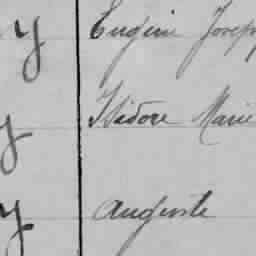 y Eugène Joseph
y Isidore Marie
y Auguste